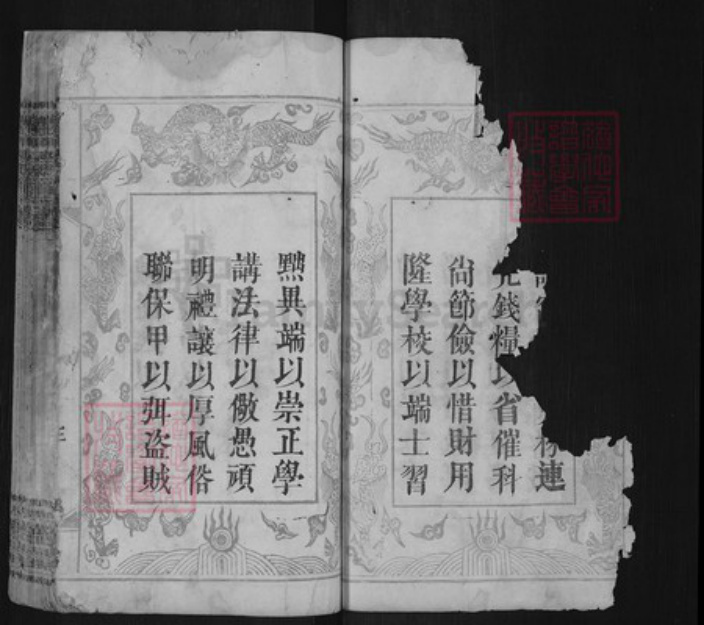 連
完錢糧以省催科
尙節儉以惜財用
隆學校以端士習
黜異端以崇正學
講法律以儆愚頑
明禮讓以厚風俗
聯保甲以弭盗賊
FamilySearch